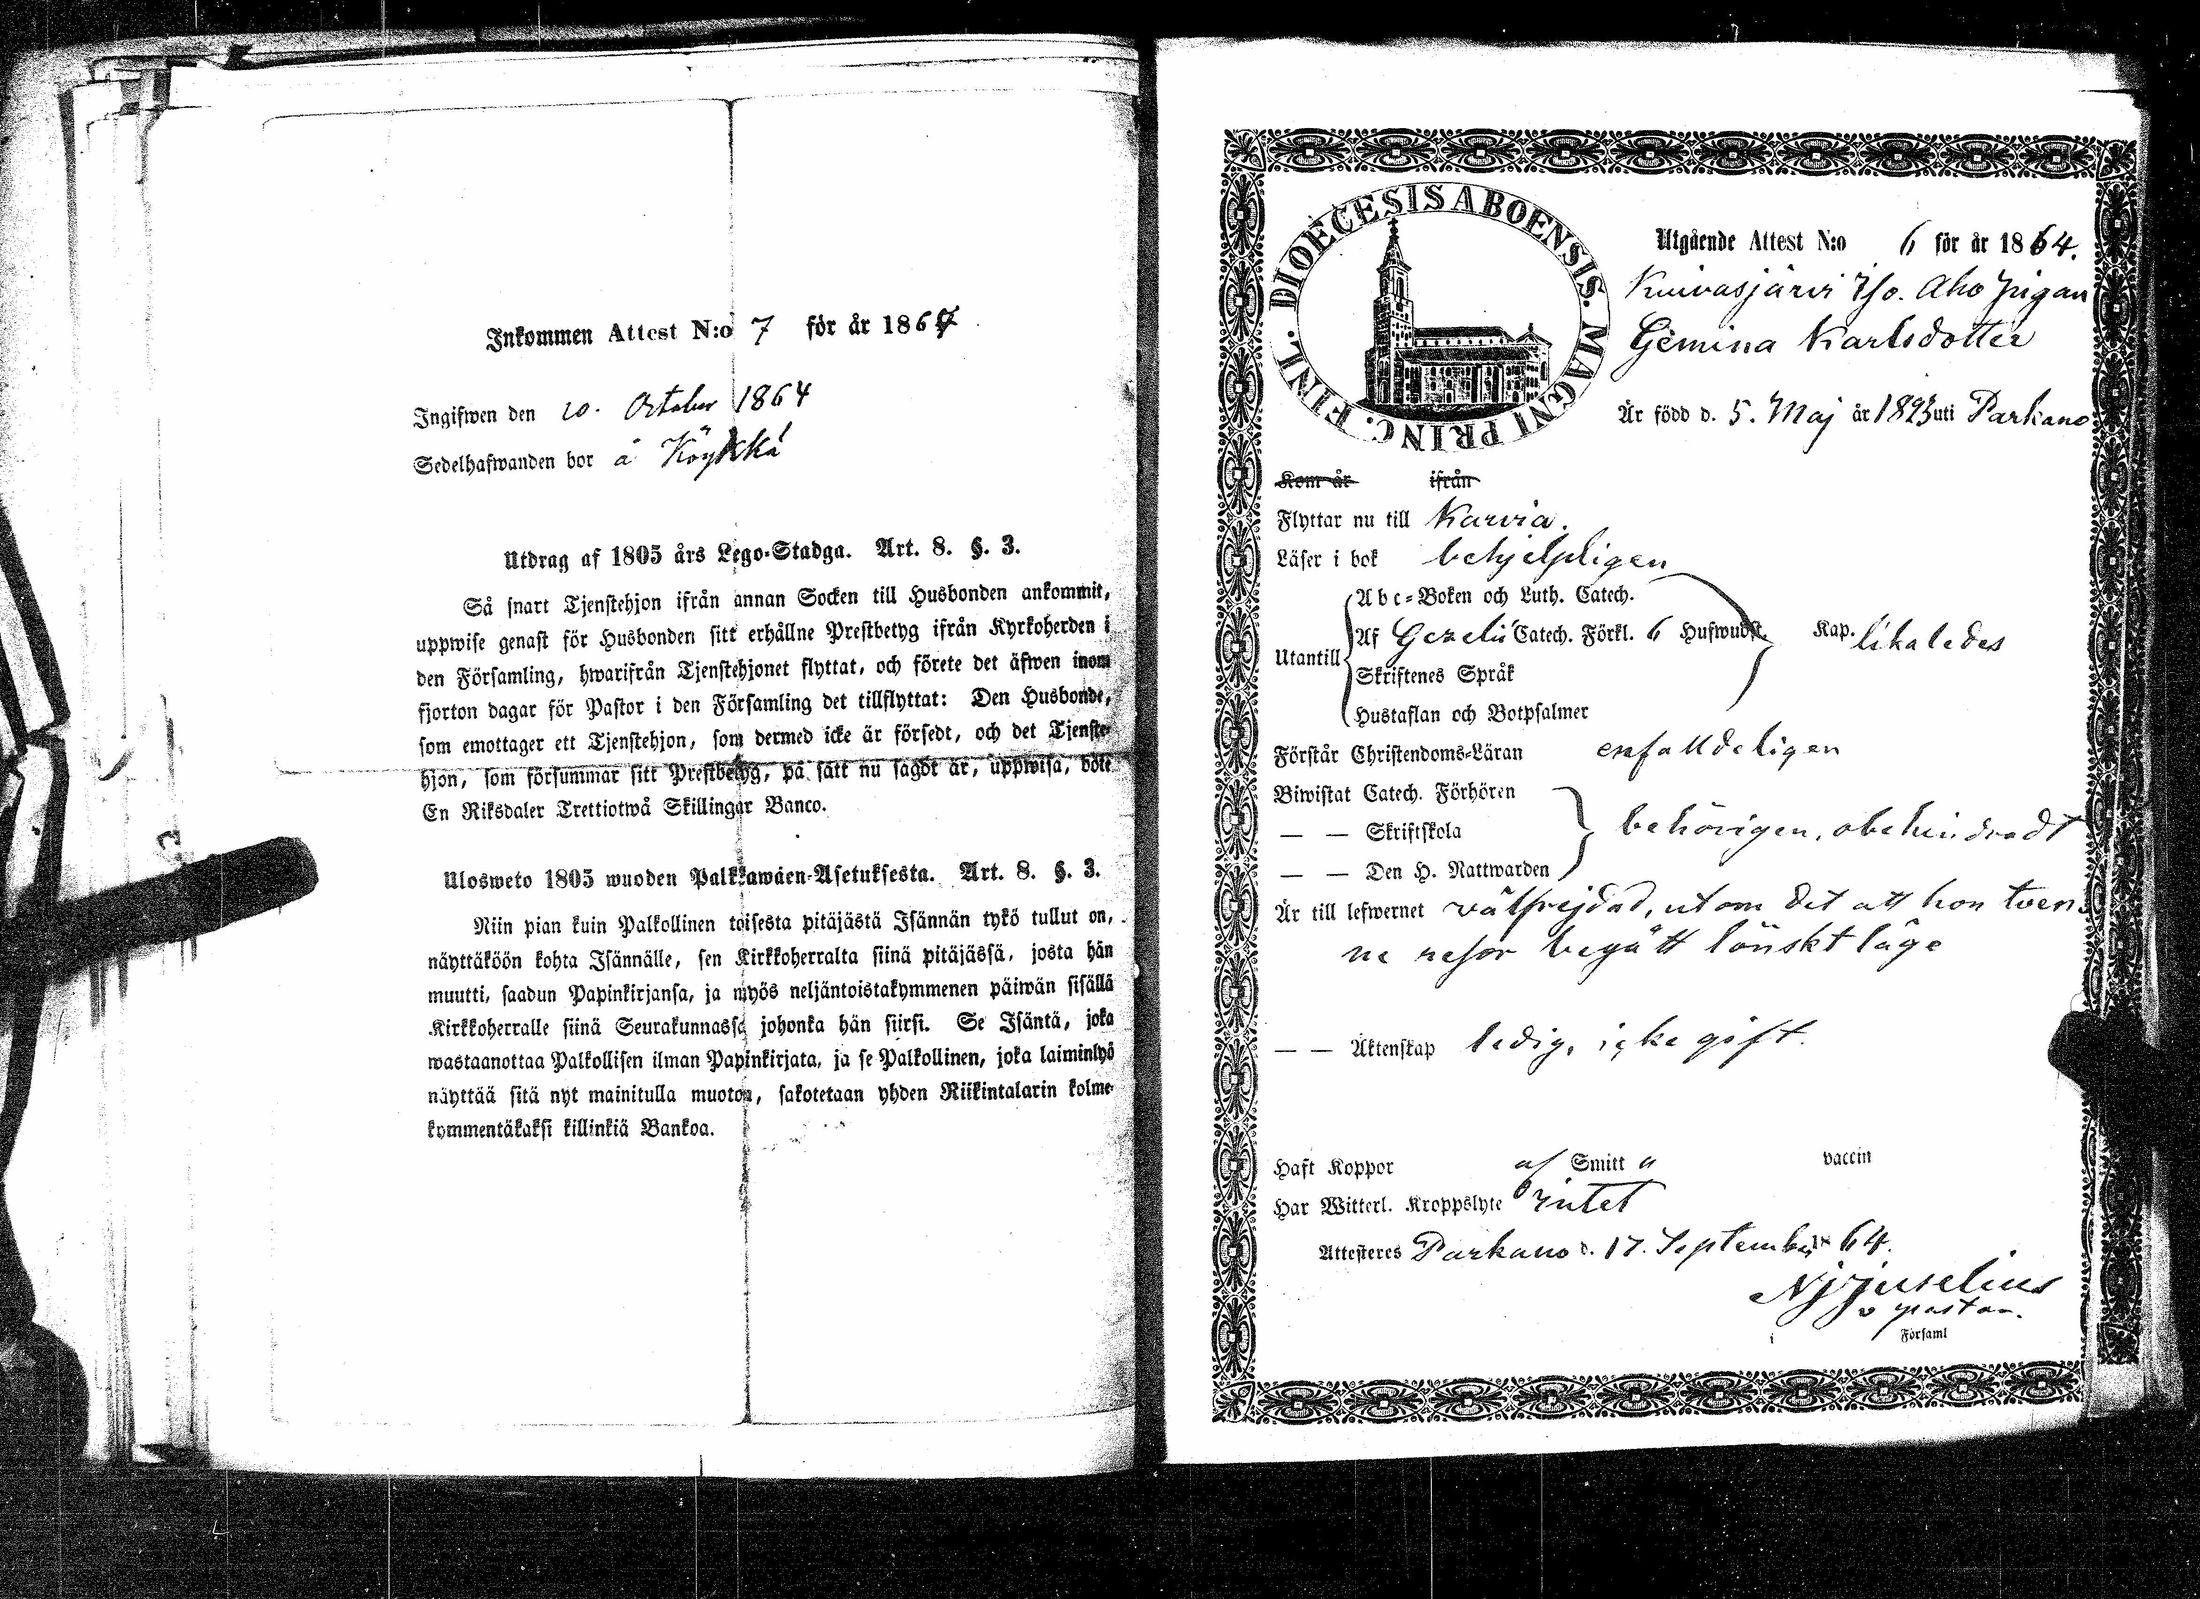 Inkommen Attest N:o 7 för år 1864
Ingifwen den 10. October 1864
Sedelhafwanden bor å Köykkä
Utdrag af 1805 års Lego-Stadga. Art. 8. §. 3.
Så snart Tjenstehjon ifrån annan Socken till Husbonden ankommit,
uppwise genast för Husbonden sitt erhållne Prestbetyg ifrån Kyrkoherden i
den Församling, hwarifrån Tjenstehjonet flyttat, och förete det äfwen inom
fjorton dagar för Pastor i den Församling det tillflyttat: Den Husbonde,
som emottager ett Tjenstehjon, som dermed icke är försedt, och det Tjenste-
hjon, som försummar sitt Prestbetyg, på sätt nu sagdt är, uppwisa, böte
En Riksdaler Trettiotwå Skillingar Banco.
Ulosweto 1805 wuoden Palkkawäen-Asetuksesta. Art. 8. §. 3.
Niin pian kuin Palkollinen toisesta pitäjästä Isännän tykö tullut on,
näyttäköön kohta Isännälle, sen Kirkkoherralta siinä pitäjässä, josta hän
muutti, saadun Papinkirjansa, ja myös neljäntoistakymmenen päiwän sisällä
Kirkkoherralle siinä Seurakunnassa johonka hän siirsi. Se Isäntä, joka
wastaanottaa Palkollisen ilman Papinkirjata, ja se Palkollinen, joka laiminlyö
näyttää sitä nyt mainitulla muoton, sakotetaan yhden Riikintalarin kolme-
kymmentäkaksi killinkiä Bankoa.
DIOECESIS ABOENSIS. MAGNI PRINC. FINL.
Utgående Attest N:o 6 för år 1864.
Kuivasjärvi Iso. Aho pigan
Gemina Karlsdotter
Är född d. 5. Maj år 1823 uti Parkano
Kom år ifrån
Flyttar nu till Karvia.
Läser i bok behjelpligen
Utantill
Abc-Boken och Luth. Catech.
Af Gezelii Catech. Förkl. 6 Hufwudst. Kap. likaledes
Skriftenes Språk
Hustaflan och Botpsalmer
Förstår Christendoms-Läran enfalldeligen
Biwistat Catech. Förhören
— — Skriftskola behörigen, obehindradt
— — Den H. Nattwarden
Är till lefwernet välfrejdad, utom det att hon tven-
ne resor begått lönskt läge
— — Äktenskap ledig, icke gift.
Haft Koppor af Smitt " vaccin
Har Witterl. Kroppslyte intet
Attesteres Parkano d. 17. September 1864.
NJ Juselius
v pastor.
i Församl